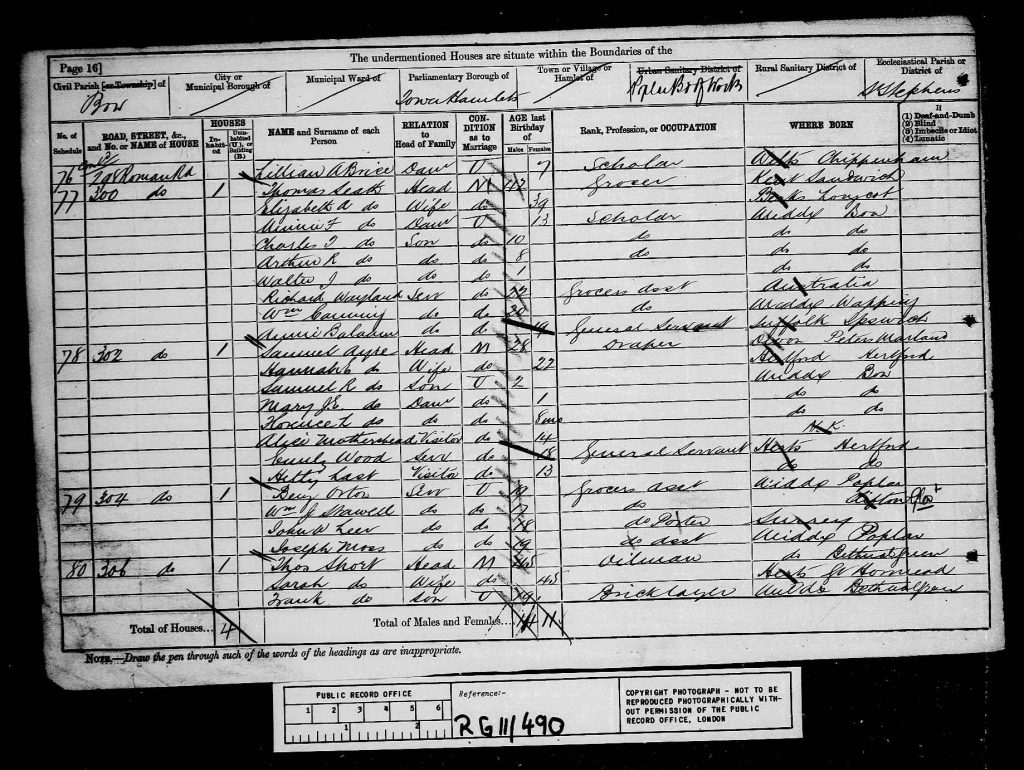 The undermentioned Houses are situate within the Boundaries of the
Page 16]
Civil Parish [or Township] of
City or Municipal Borough of
Municipal Ward of
Parliamentary Borough of
Town or Village or Hamlet of
Urban Sanitary District of
Rural Sanitary District of
Ecclesiastical Parish or District of
Bow
Tower Hamlets
St Stephens
No. of Schedule
ROAD, STREET, &c., and No. or NAME of HOUSE
HOUSES
Inhabited
Uninhabited (U.), or Building (B.)
NAME and Surname of each Person
RELATION to Head of Family
CONDITION as to Marriage
AGE last Birthday of
Males
Females
Rank, Profession, or OCCUPATION
WHERE BORN
If
(1) Deaf-and-Dumb
(2) Blind
(3) Imbecile or Idiot
(4) Lunatic
76 298 Roman Rd Lillian A Brice Daur U 7 Scholar Wilts Chippenham
77 300 do 1 Thomas Head M Grocer Kent Sandwich
Elizabeth A do Wife do 39 Berks Longcot
Minnie F do Daur U 13 Scholar Middx Bow
Charles do Son do 10 do do do
Arthur R do do do 8 do do do
Walter J do do do 1 do do
Richard Wayland Serv do 22 Grocers Asst Australia
Wm do do 20 do Middx Wapping
Annie Balaam do do 19 General Servant Suffolk Ipswich
78 302 do 1 Samuel Ayre Head M 28 Draper Devon Peters Marland
Hannah E do Wife do 22 Hertford Hertford
Samuel R do Son U 2 Middx Bow
Mary J E do Daur do 1 do do
Florence L do do do 8 mo do do
Alice Visitor do 14 N.K.
Emily Wood Serv do 18 General Servant Herts Hertford
Hetty Last Visitor do 13 do do
79 304 do 1 Benj Orton Serv U 19 Grocers Asst Middx Poplar
Wm J do do 17 do
John W do do 18 do Porter Surrey
Joseph Moss do do 19 do Asst Middx Poplar
80 306 do 1 Thos Short Head M 45 Oilman do Bethnal Green
Sarah do Wife do 45 Herts
Frank do Son U 19 Bricklayer Middx Bethnal Green
Total of Houses... 4
Total of Males and Females... 14 11
NOTE.—Draw the pen through such of the words of the headings as are inappropriate.
PUBLIC RECORD OFFICE
1 2 3 4 5 6
1 2
Reference:-
RG 11/490
COPYRIGHT PHOTOGRAPH - NOT TO BE
REPRODUCED PHOTOGRAPHICALLY WITH-
OUT PERMISSION OF THE PUBLIC
RECORD OFFICE, LONDON